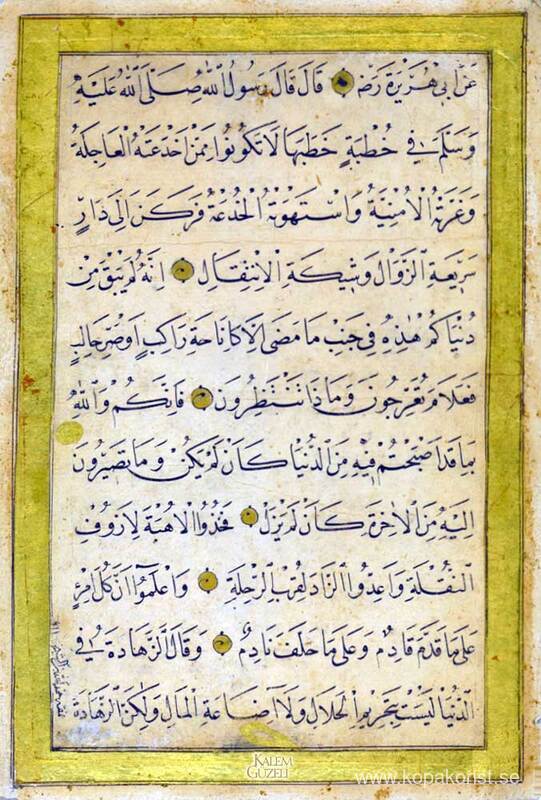 عَنْ اَبِي هُرَيْرَةَ رَضِ قَالَ قَالَ رَسُولُ اللّٰهِ صَلَّى اللّٰهُ عَلَيْهِ
وَسَلَّمَ فِي خُطْبَةٍ خَطَبَهَا لَا تَكُونُوا مِمَّنْ اخْدَعَتْهُ الْعَاجِلَةُ
وَغَرَّتْهُ الْاُمْنِيَّةُ وَاسْتَهْوَتْهُ الْخُدْعَةُ فَرَكَنَ اِلَى دَارٍ
سَرِيعَةِ الزَّوَالِ وَشِيكَةِ الْاِنْتِقَالِ اِنَّهُ لَمْ يَبْقَ مِنْ
دُنْيَاكُمْ هٰذِهِ فِي جَنْبِ مَا مَضَى اِلَّا كَاِنَاخَةِ رَاكِبٍ اَوْ صَرِّ حَالِبٍ
فَعَلَامَ تَعْرُجُونَ وَمَاذَا تَنْتَظِرُونَ فَاِنَّكُمْ وَاللّٰهِ
بِمَا قَدْ اَصْبَحْتُمْ فِيهِ مِنَ الدُّنْيَا كَاَنْ لَمْ يَكُنْ وَمَا تَصِيرُونَ
اِلَيْهِ مِنَ الْاٰخِرَةِ كَاَنْ لَمْ يَزَلْ فَخُذُوا الْاُهْبَةَ لِاَزُوفِ
النُّقْلَةِ وَاَعِدُّوا الزَّادَ لِقُرْبِ الرِّحْلَةِ وَاعْلَمُوا اَنَّ كُلَّ امْرِئٍ
عَلَى مَا قَدَّمَ قَادِمٌ وَعَلَى مَا خَلَّفَ نَادِمٌ وَقَالَ الزَّهَادَةُ فِي
الدُّنْيَا لَيْسَتْ بِتَحْرِيمِ الْحَلَالِ وَلَا اِضَاعَةِ الْمَالِ وَلٰكِنَّ الزَّهَادَةَ
KALEM
GÜZELİ
www.kopakonst.se